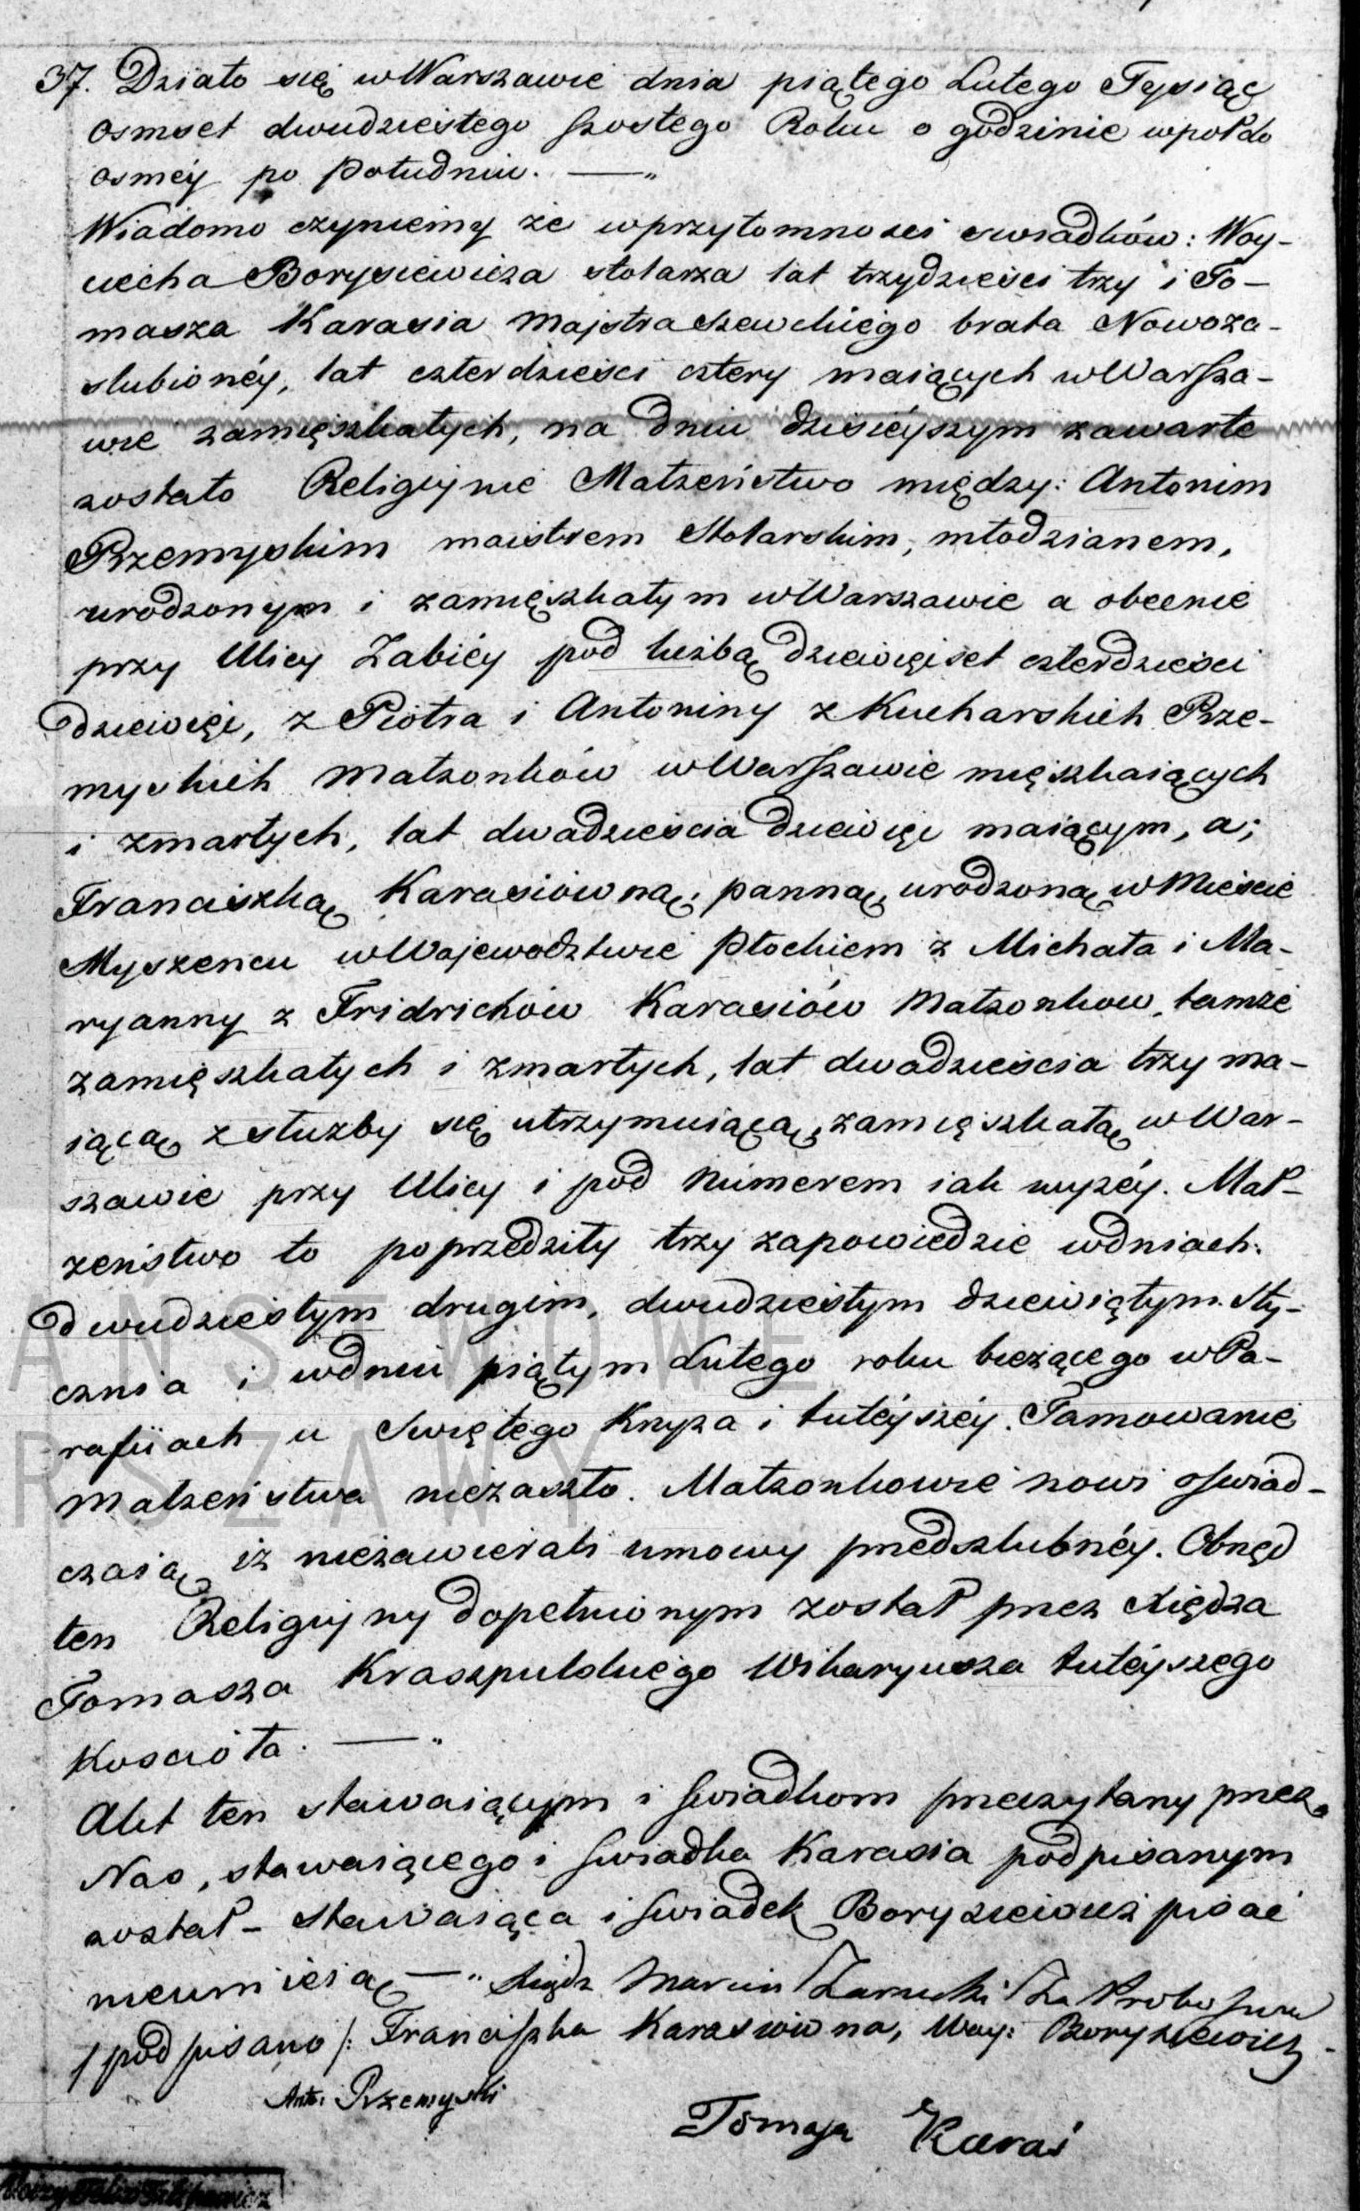 37. Działo się w Warszawie dnia piątego Lutego Tysiąc
osmset dwudziestego szostego Roku o godzinie wpoł do
osmey po południu. —„
Wiadomo czyniemy że wprzytomnosci swiadków: Woy-
ciecha Borysiewicza stolarza lat trzydziesci trzy i To-
masza Karasia Majstra Szewckiego brata Nowoza-
slubionéy, lat czterdziesci cztery maiących w Warsza-
wie zamięszkałych, na dniu dzisiéyszym zawarte
zostało Religiyne Małzeństwo między: Antonim
Przemyskim maistrem Stolarskim, młodzianem,
urodzonym i zamięszkałym w Warszawie a obecnie
przy Ulicy Żabiéy pod liczbą dziewięiset czterdziesci
dziewięi, z Piotra i Antoniny z Kucharskich Prze-
myskich Małzonków w Warszawie mięszkaiących
i zmarłych, lat dwadziescia dziewięi maiącym, a;
Franciszką Karasiówną, panną, urodzoną w Miescie
Myszencu w Wojewodztwie Płockiem z Michała i Ma-
ryanny z Fridrichów Karasiów Małzonkow, tamże
zamięszkałych i zmarłych, lat dwadziescia trzy ma-
iącą z służby się utrzymuiącą, zamięszkałą w War-
szawie przy Ulicy i pod Numerem iak wyzéy. Mał-
żeństwo to poprzedziły trzy zapowiedzie wdniach:
dwudziestym drugim, dwudziestym dziewiątym Sty-
cznia i wdniu piątym Lutego roku bieżącego w Pa-
rafiiach u Swiętego Krzyża i tutéyszéy. Tamowanie
Małzeństwa niezaszło. Małzonkowie nowi oswiad-
czaią iż niezawierali umowy przedszlubnéy. Obrzęd
ten Religiyny dopełnionym został przez Xiędza
Tomasza Wikaryusza tutéyszego
Koscioła. —„
Akt ten stawaiącym i swiadkom przeczytany przez
Nas, stawaiącego i swiadka Karasia podpisanym
został – Stawaiąca i swiadek Borysiewicz pisać
nieumieią —„ Xiądz Marcin Za Proboszcza
/podpisano/: Franciszka Karasiówna, Woy: Borysiewicz
Anto: Przemyski
Tomasz Karaś
ANSTWOWE
RSZAWY